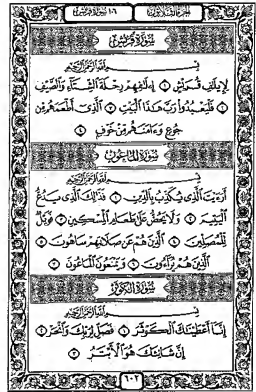 الجزء الثلاثون ١٠٦ سورة قريش
سُورَةُ قُرَيْشٍ
بِسْمِ اللَّهِ الرَّحْمَٰنِ الرَّحِيمِ
لِإِيلَٰفِ قُرَيْشٍ ١ إِۦلَٰفِهِمْ رِحْلَةَ ٱلشِّتَآءِ وَٱلصَّيْفِ
٢ فَلْيَعْبُدُوا۟ رَبَّ هَٰذَا ٱلْبَيْتِ ٣ ٱلَّذِىٓ أَطْعَمَهُم مِّن
جُوعٍ وَءَامَنَهُم مِّنْ خَوْفٍۭ ٤
سُورَةُ الْمَاعُونِ
بِسْمِ اللَّهِ الرَّحْمَٰنِ الرَّحِيمِ
أَرَءَيْتَ ٱلَّذِى يُكَذِّبُ بِٱلدِّينِ ١ فَذَٰلِكَ ٱلَّذِى يَدُعُّ
ٱلْيَتِيمَ ٢ وَلَا يَحُضُّ عَلَىٰ طَعَامِ ٱلْمِسْكِينِ ٣ فَوَيْلٌ
لِّلْمُصَلِّينَ ٤ ٱلَّذِينَ هُمْ عَن صَلَاتِهِمْ سَاهُونَ ٥
ٱلَّذِينَ هُمْ يُرَآءُونَ ٦ وَيَمْنَعُونَ ٱلْمَاعُونَ ٧
سُورَةُ الْكَوْثَرِ
بِسْمِ اللَّهِ الرَّحْمَٰنِ الرَّحِيمِ
إِنَّآ أَعْطَيْنَٰكَ ٱلْكَوْثَرَ ١ فَصَلِّ لِرَبِّكَ وَٱنْحَرْ ٢
إِنَّ شَانِئَكَ هُوَ ٱلْأَبْتَرُ ٣
٦٠٢